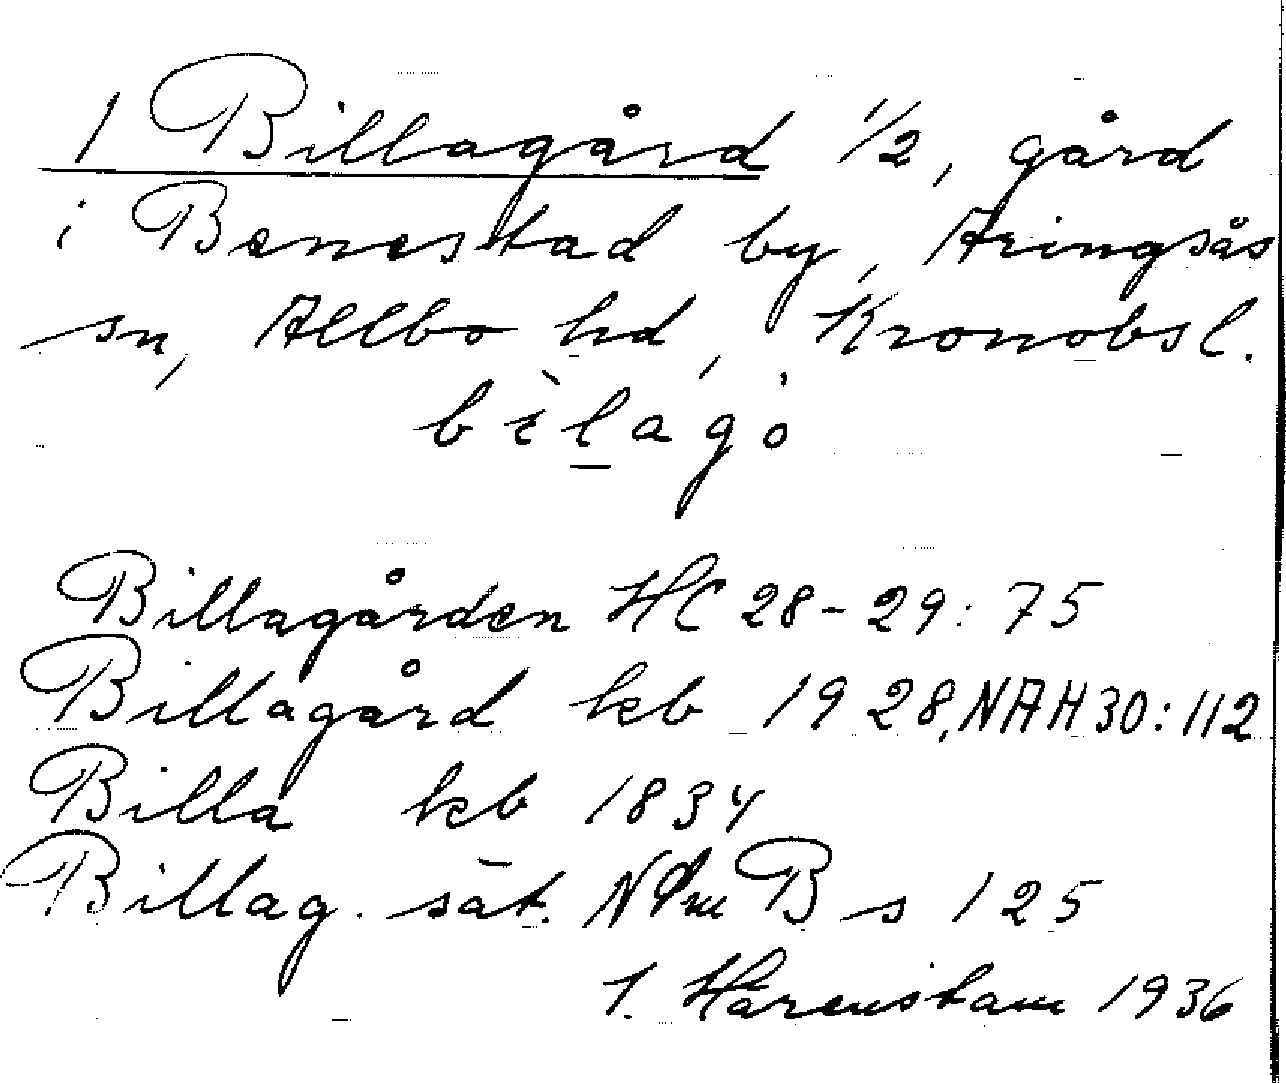 1 Billagård 1/2, gård
i Benestad by, Aringsås
sn, Allbo hd, Kronobsl.
bìlagȯ
Billagården HC 28-29: 75
Billagård kb 1928, NAH 30: 112
Billa kb 1834
Billag. sät. B s 125
Härenstam 1936